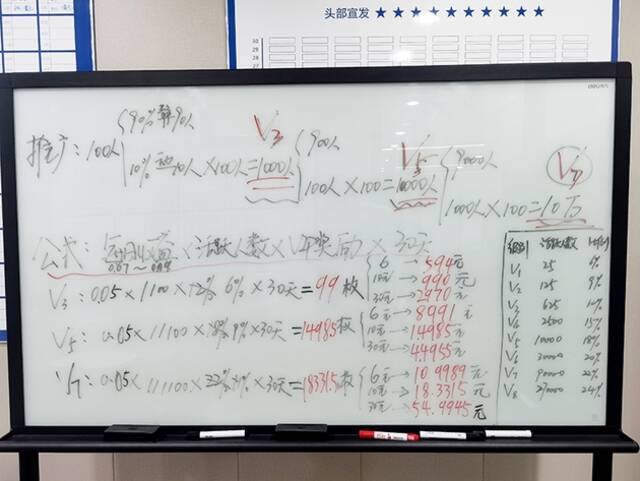 头部宣发 ★★★★★★★★★★
30
29
28
27
推广: 100人 { 90% 90人
10% 10人×100人=1000人 V3
{ 900人
100人×100=10000人 V5
{ 9000人
1000人×100=10万 V7
公式: 每日收益×活跃人数×V奖励×30天
0.07~
V3: 0.05×1100× 6%×30天=99枚
{ 6元→594元
10元→990元
30元→2970元
V5: 0.05×11100× 9%×30天=1498.5枚
{ 6元→8991元
10元→1.4985元
30元→4.4955元
V7: 0.05×111100×22% ×30天=18331.5枚
{ 6元→10.9989元
10元→18.3315元
30元→54.9945元
级别 活跃人数
V1 25 6%
V2 125 9%
V3 625 12%
V4 2500 15%
V5 10000 18%
V6 30000 20%
V7 90000 22%
V8 270000 24%